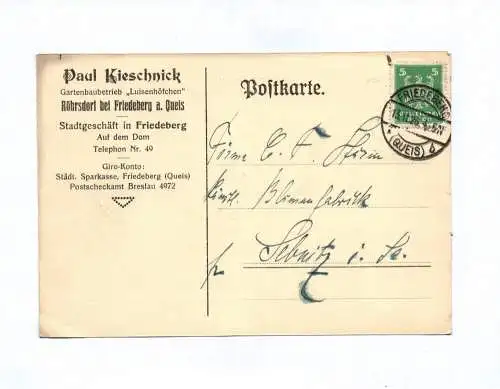 Paul Kieschnick
Gartenbaubetrieb „Luisenhöfchen"
Röhrsdorf bei Friedeberg a. Queis
Stadtgeschäft in Friedeberg
Auf dem Dom
Telephon Nr. 40
Giro-Konto:
Städt. Sparkasse, Friedeberg (Queis)
Postscheckamt Breslau 4972
Postkarte.
5 5
FRIEDEBERG
(QUEIS)
Firma C. F.
Blumenfabrick
Sebnitz i. Sa.